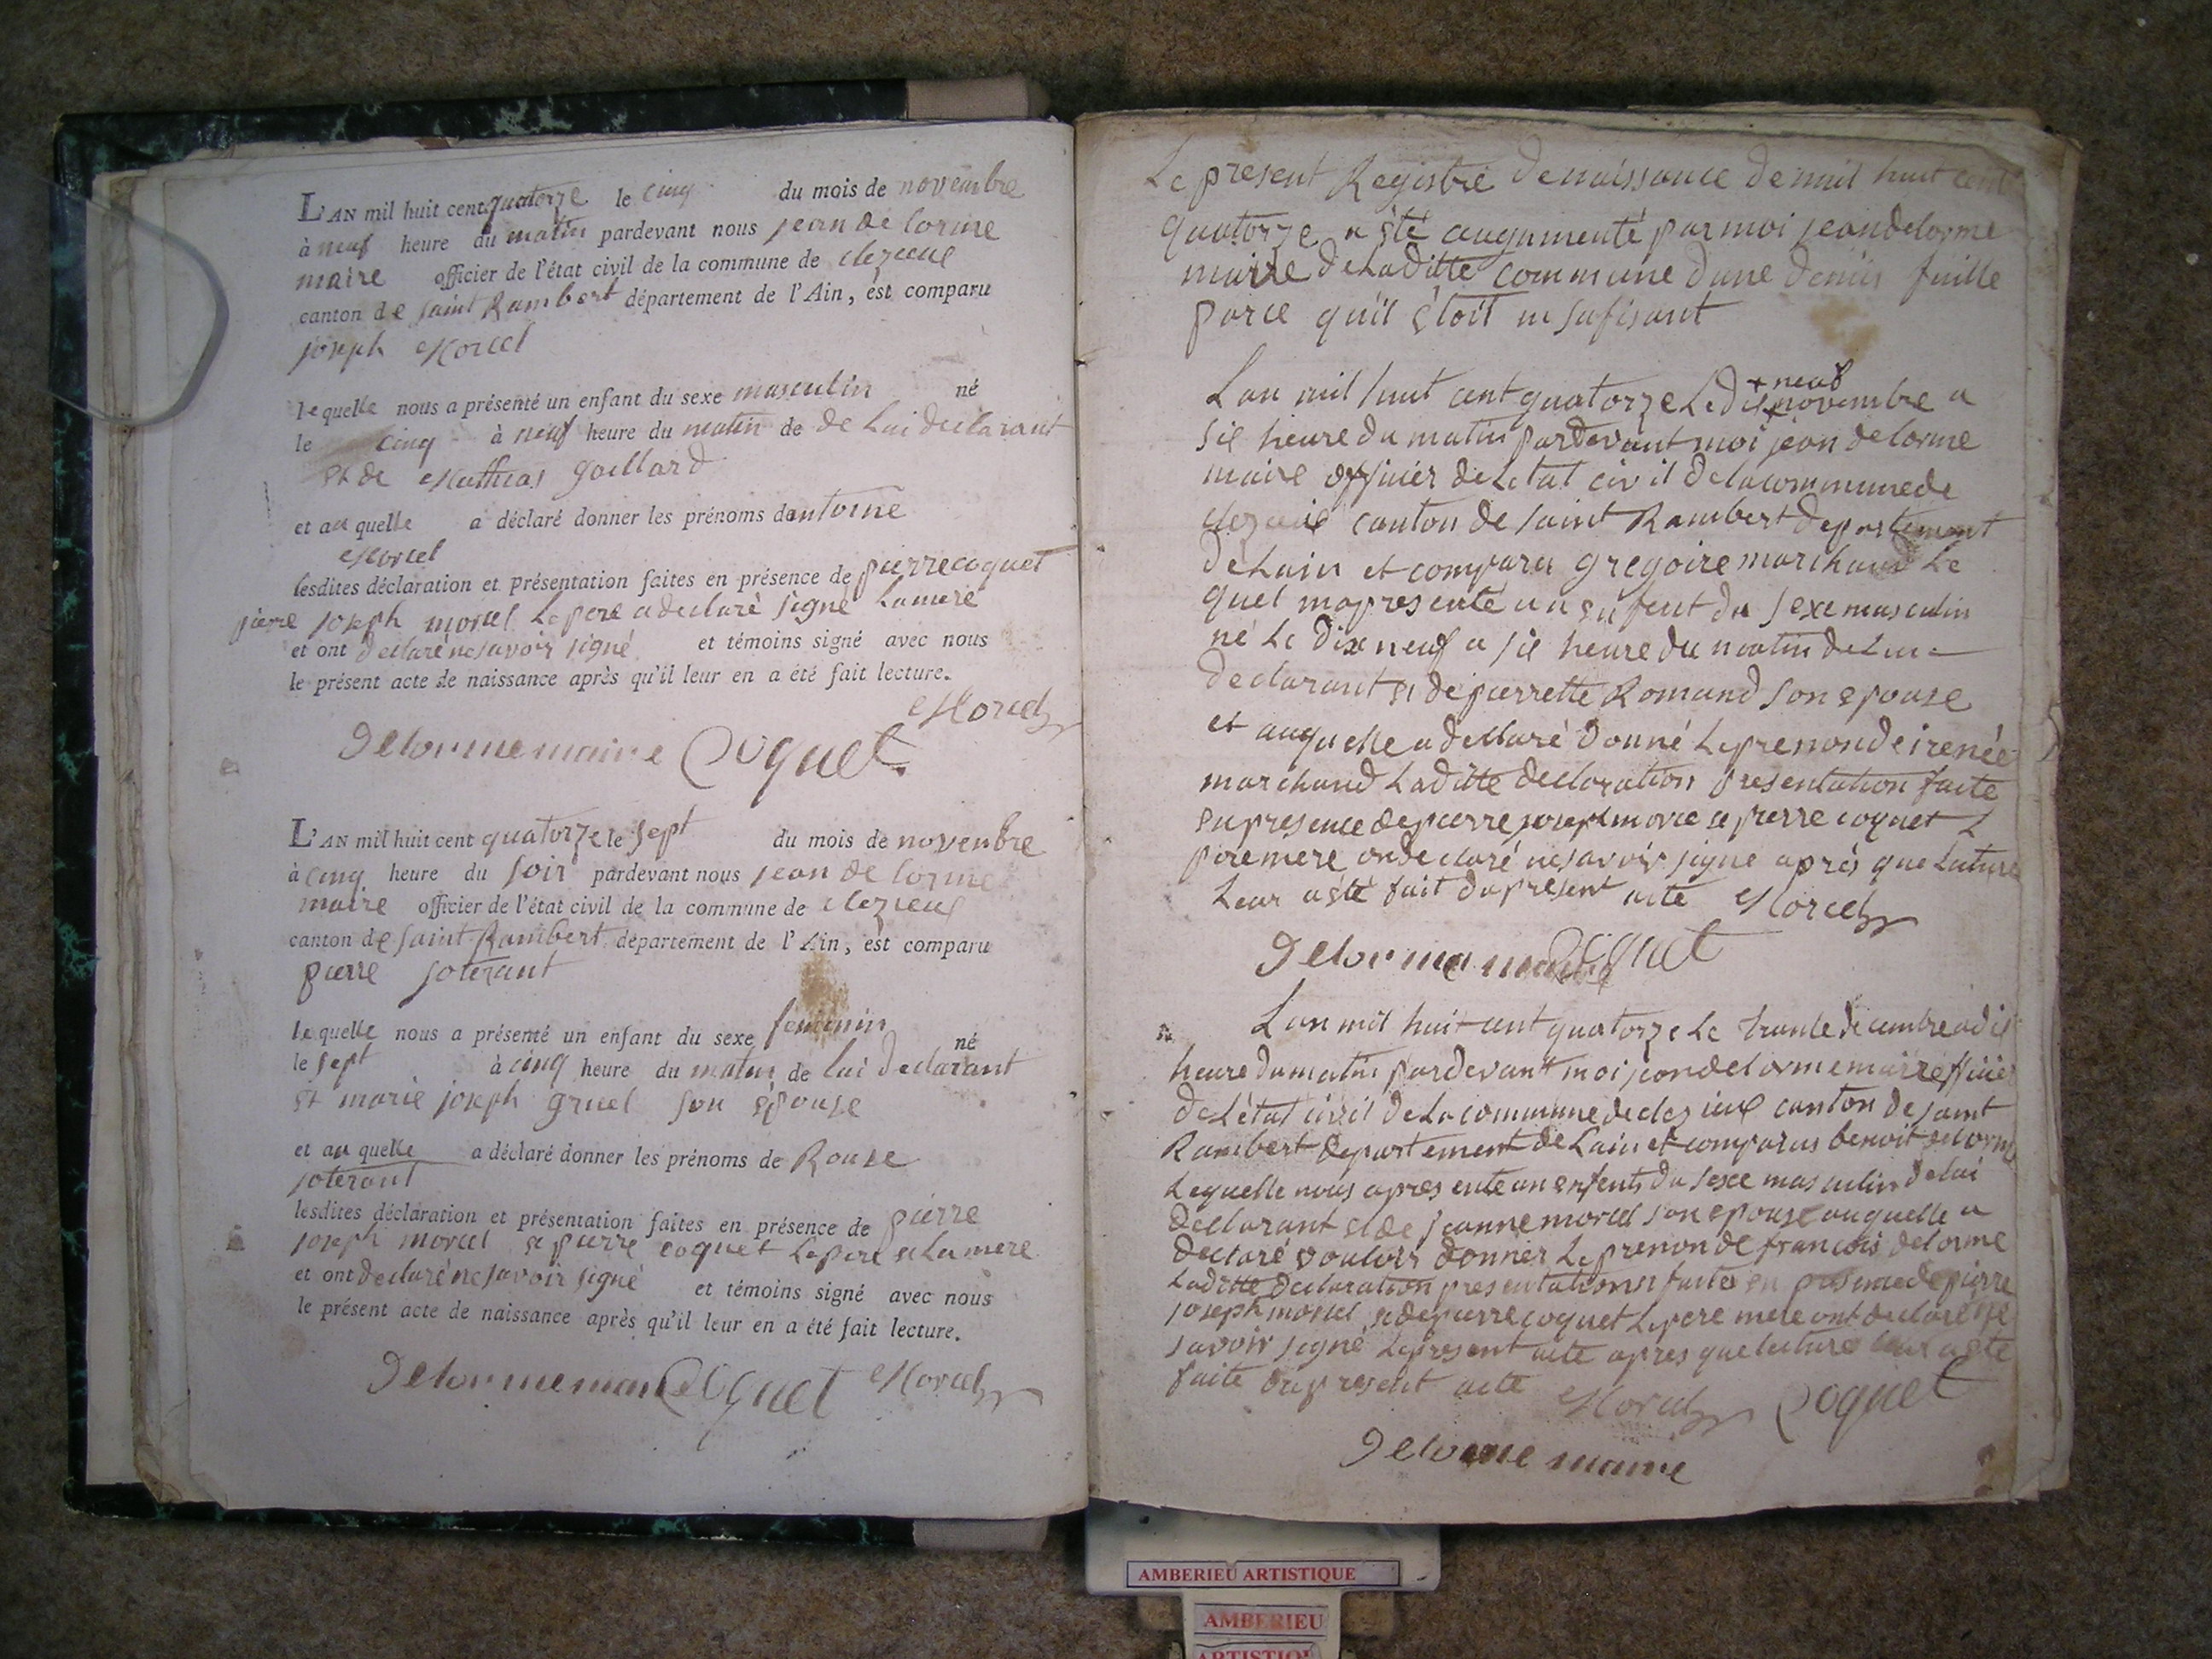 L'AN mil huit cent quatorze le cinq du mois de novembre
à neuf heure du matin pardevant nous jean de lorme
maire officier de l'état civil de la commune de clezieux
canton de saint Rambert département de l'Ain, est comparu
joseph Morcel
lequelle nous a présenté un enfant du sexe masculin né
le cinq à neuf heure du matin de de Lui declarant
et de gaillard
et au quelle a déclaré donner les prénoms dantoine
Morcel
lesdites déclaration et présentation faites en présence de pierre coquet
pierre joseph morcel Le pere a declaré signé La mere
et ont declaré ne savoir signé et témoins signé avec nous
le présent acte de naissance après qu'il leur en a été fait lecture.
Morcel
Delorme maire Coquet
L'AN mil huit cent quatorze le sept du mois de novenbre
à cinq heure du soir pardevant nous jean de lorme
maire officier de l'état civil de la commune de clezieux
canton de saint Rambert département de l'Ain, est comparu
pierre soterant
lequelle nous a présenté un enfant du sexe feminin né
le sept à cinq heure du matin de lui declarant
et marie joseph gruel son epouse
et au quelle a déclaré donner les prénoms de Rouse
soterant
lesdites déclaration et présentation faites en présence de pierre
joseph morcel et pierre coquet Le pere et La mere
et ont declaré ne savoir signé et témoins signé avec nous
le présent acte de naissance après qu'il leur en a été fait lecture.
Delorme maire Coquet Morcel
Le present Registre de naissance de mil huit cent
quatorze a été augumenté par moi jean delorme
maire de La ditte commune dune demis fuille
parce qu'il étoit in sufisant
Lan mil huit cent quatorze Le dix + neuf novembre a
sie heure du matin pardevant moi jean delorme
maire officier de Letat civil de la commune de
clezieux canton de saint Rambert departement
de Lain et comparu gregoire marchand Le
quel ma presenté un enfent du sexe masculin
né Le dixe neuf a sie heure du matin de Lui
declarant et de pierrette Romand son epouse
et auquelle a declaré donné Le prenon de irenée
marchand La ditte declaration presentation faite
en presence de pierre joseph morcel et pierre coquet L
pere mere on declaré ne savoir signe aprés que Lature
Leur a été fait du present acte Morcel
Delorme maire Coquet
Lan mil huit cent quatorze Le trante decembre a dix
heure du matin pardevant moi jean delorme maire officier
de Létat civil de La commune de clezieux canton de saint
Rambert departement de Lain et comparus benoit delorme
Lequelle nous a presente un enfents du sexe masculin de lui
declarant et de jeanne morcel son epouse auquelle a
declaré vouloir donner Le prenon de francois delorme
La ditte declaration presentation et faites en presence de pierre
joseph morcel et de pierre coquet Le pere mere ont declaré ne
savoir signé Le present acte apres que lecture leur a été
faite du present acte Morcel Coquet
Delorme maire
AMBERIEU ARTISTIQUE
AMBERIEU
ARTISTIQUE